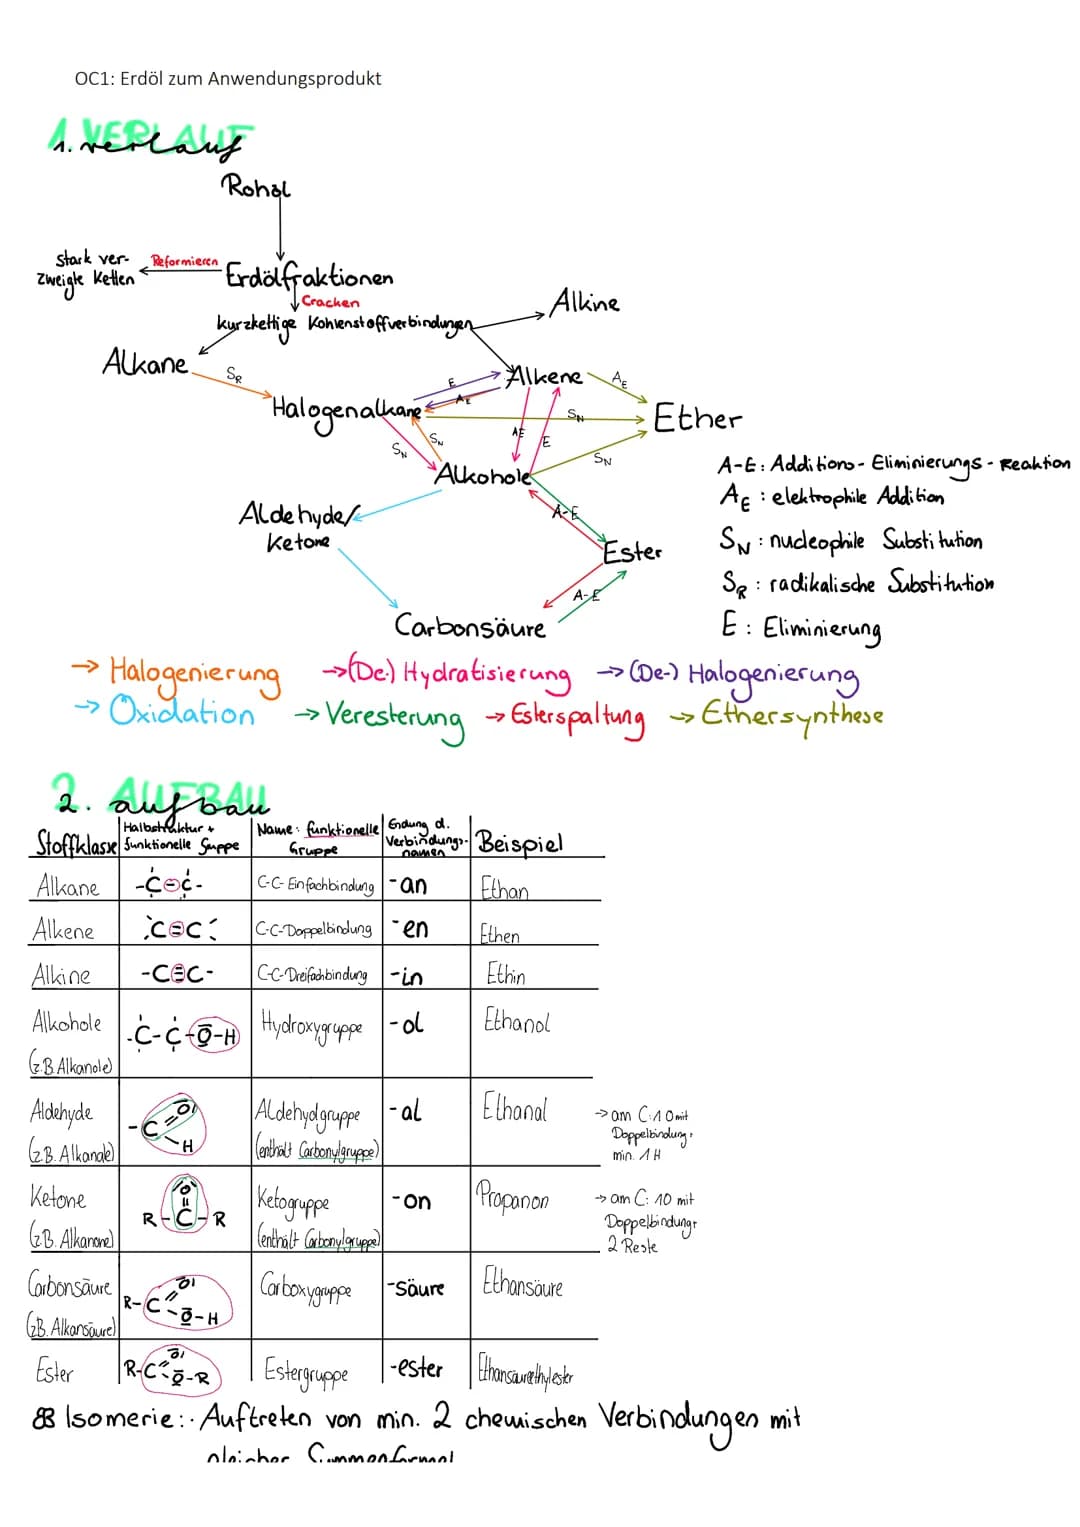 OC1: Erdöl zum Anwendungsprodukt
1. VERLAUF
1. verlauf
Rohöl
stark ver-
zweigte Ketten
Reformieren
Erdölfraktionen
Cracken
kurzkettige Kohlenstoffverbindungen
Alkine
Alkane
SR
E
Alkene
AE
AE
Halogenalkane
SN
Ether
SN
SN
AE
E
SN
Alkohole
A-E: Additions- Eliminierungs- Reaktion
AE: elektrophile Addition
SN: nucleophile Substitution
SR: radikalische Substitution
E: Eliminierung
Aldehyde/
Ketone
A-E
Ester
A-E
Carbonsäure
→ Halogenierung → (De-) Hydratisierung → (De-) Halogenierung
→ Oxidation → Veresterung → Esterspaltung → Ethersynthese
2. AUFBAU
2. aufbau
Stoffklasse Halbstruktur + funktionelle Gruppe Name: funktionelle Gruppe Endung d. Verbindungs-namen Beispiel
Alkane -C-C- C-C-Einfachbindung -an Ethan
Alkene C=C C-C-Doppelbindung -en Ethen
Alkine -C≡C- C-C-Dreifachbindung -in Ethin
Alkohole -C-C-O-H Hydroxygruppe -ol Ethanol
(z.B. Alkanole)
Aldehyde -C=O Aldehydgruppe -al Ethanal → am C: 1 O mit
(z.B. Alkanale) H (enthält Carbonylgruppe) Doppelbindung,
min. 1 H
Ketone O Ketogruppe -on Propanon → am C: 1O mit
R-C-R Doppelbindung+
(z.B. Alkanone) (enthält Carbonylgruppe) 2 Reste
Carbonsäure R-C=O Carboxygruppe -säure Ethansäure
O-H
(z.B. Alkansäure)
Ester R-C=O Estergruppe -ester Ethansäureethylester
O-R
Isomerie: Auftreten von min. 2 chemischen Verbindungen mit
gleicher Summenformel